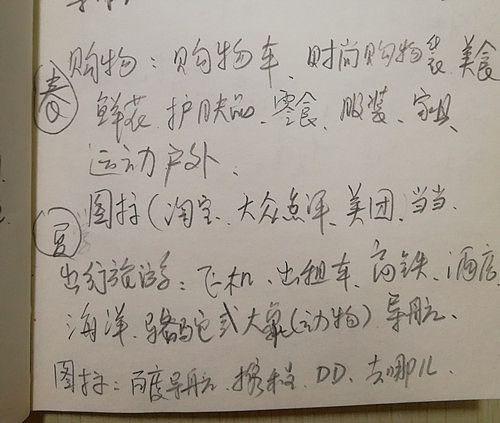 春
购物：购物车、时尚购物袋、美食
鲜花、护肤品、零食、服装、家具、
运动户外、
图标（淘宝、大众点评、美团、当当、
夏
出行旅游：飞机、出租车、高铁、酒店
海洋、骆驼式大象（动物）导航、
图标：百度导航、携程、DD、去哪儿、